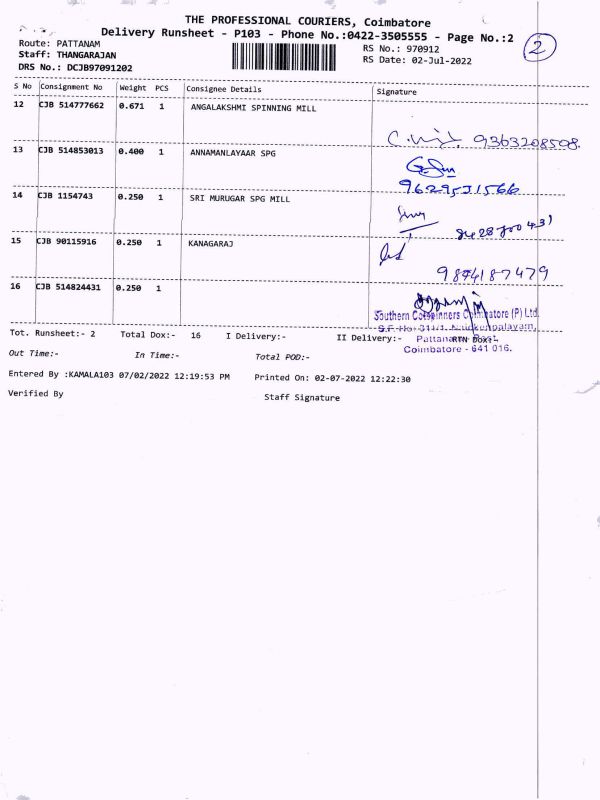 THE PROFESSIONAL COURIERS, Coimbatore
Delivery Runsheet - P103 - Phone No.:0422-3505555 - Page No.:2
2
Route: PATTANAM
RS No.: 970912
Staff: THANGARAJAN
RS Date: 02-Jul-2022
DRS No.: DCJB97091202
S No Consignment No Weight PCS Consignee Details Signature
12 CJB 514777662 0.671 1 ANGALAKSHMI SPINNING MILL
9363208508
13 CJB 514853013 0.400 1 ANNAMANLAYAAR SPG
9629531566
14 CJB 1154743 0.250 1 SRI MURUGAR SPG MILL
15 CJB 90115916 0.250 1 KANAGARAJ
9894187479
16 CJB 514824431 0.250 1
Southern Cotspinners Coimbatore (P) Ltd.
Tot. Runsheet:- 2 Total Dox:- 16 I Delivery:- II Delivery:- RTN Dox:-
Pattanam Post,
Coimbatore - 641 016.
Out Time:- In Time:- Total POD:-
Entered By :KAMALA103 07/02/2022 12:19:53 PM Printed On: 02-07-2022 12:22:30
Verified By Staff Signature